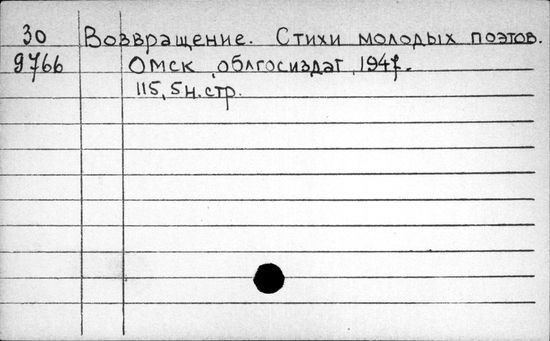 30 Возвращение. Стихи молодых поэтов.
9766 Омск, облгосиздат, 1947.
115, 5 н. стр.